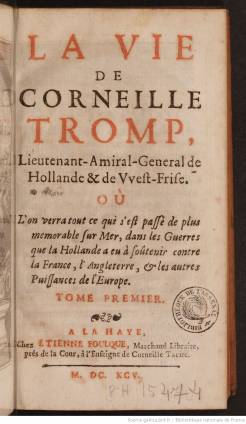 LA VIE
DE
CORNEILLE
TROMP,
Lieutenant-Amiral-General de
Hollande & de Vvest-Frise.
OÙ
L'on verra tout ce qui s'est passé de plus
memorable sur Mer, dans les Guerres
que la Hollande a eu à soûtenir contre
la France, l'Angleterre, & les autres
Puissances de l'Europe.
TOME PREMIER.
A LA HAYE,
Chez ETIENNE FOULQUE, Marchand Libraire,
prés de la Cour, à l'Enseigne de Corneille Tacite.
M. DC. XCV.